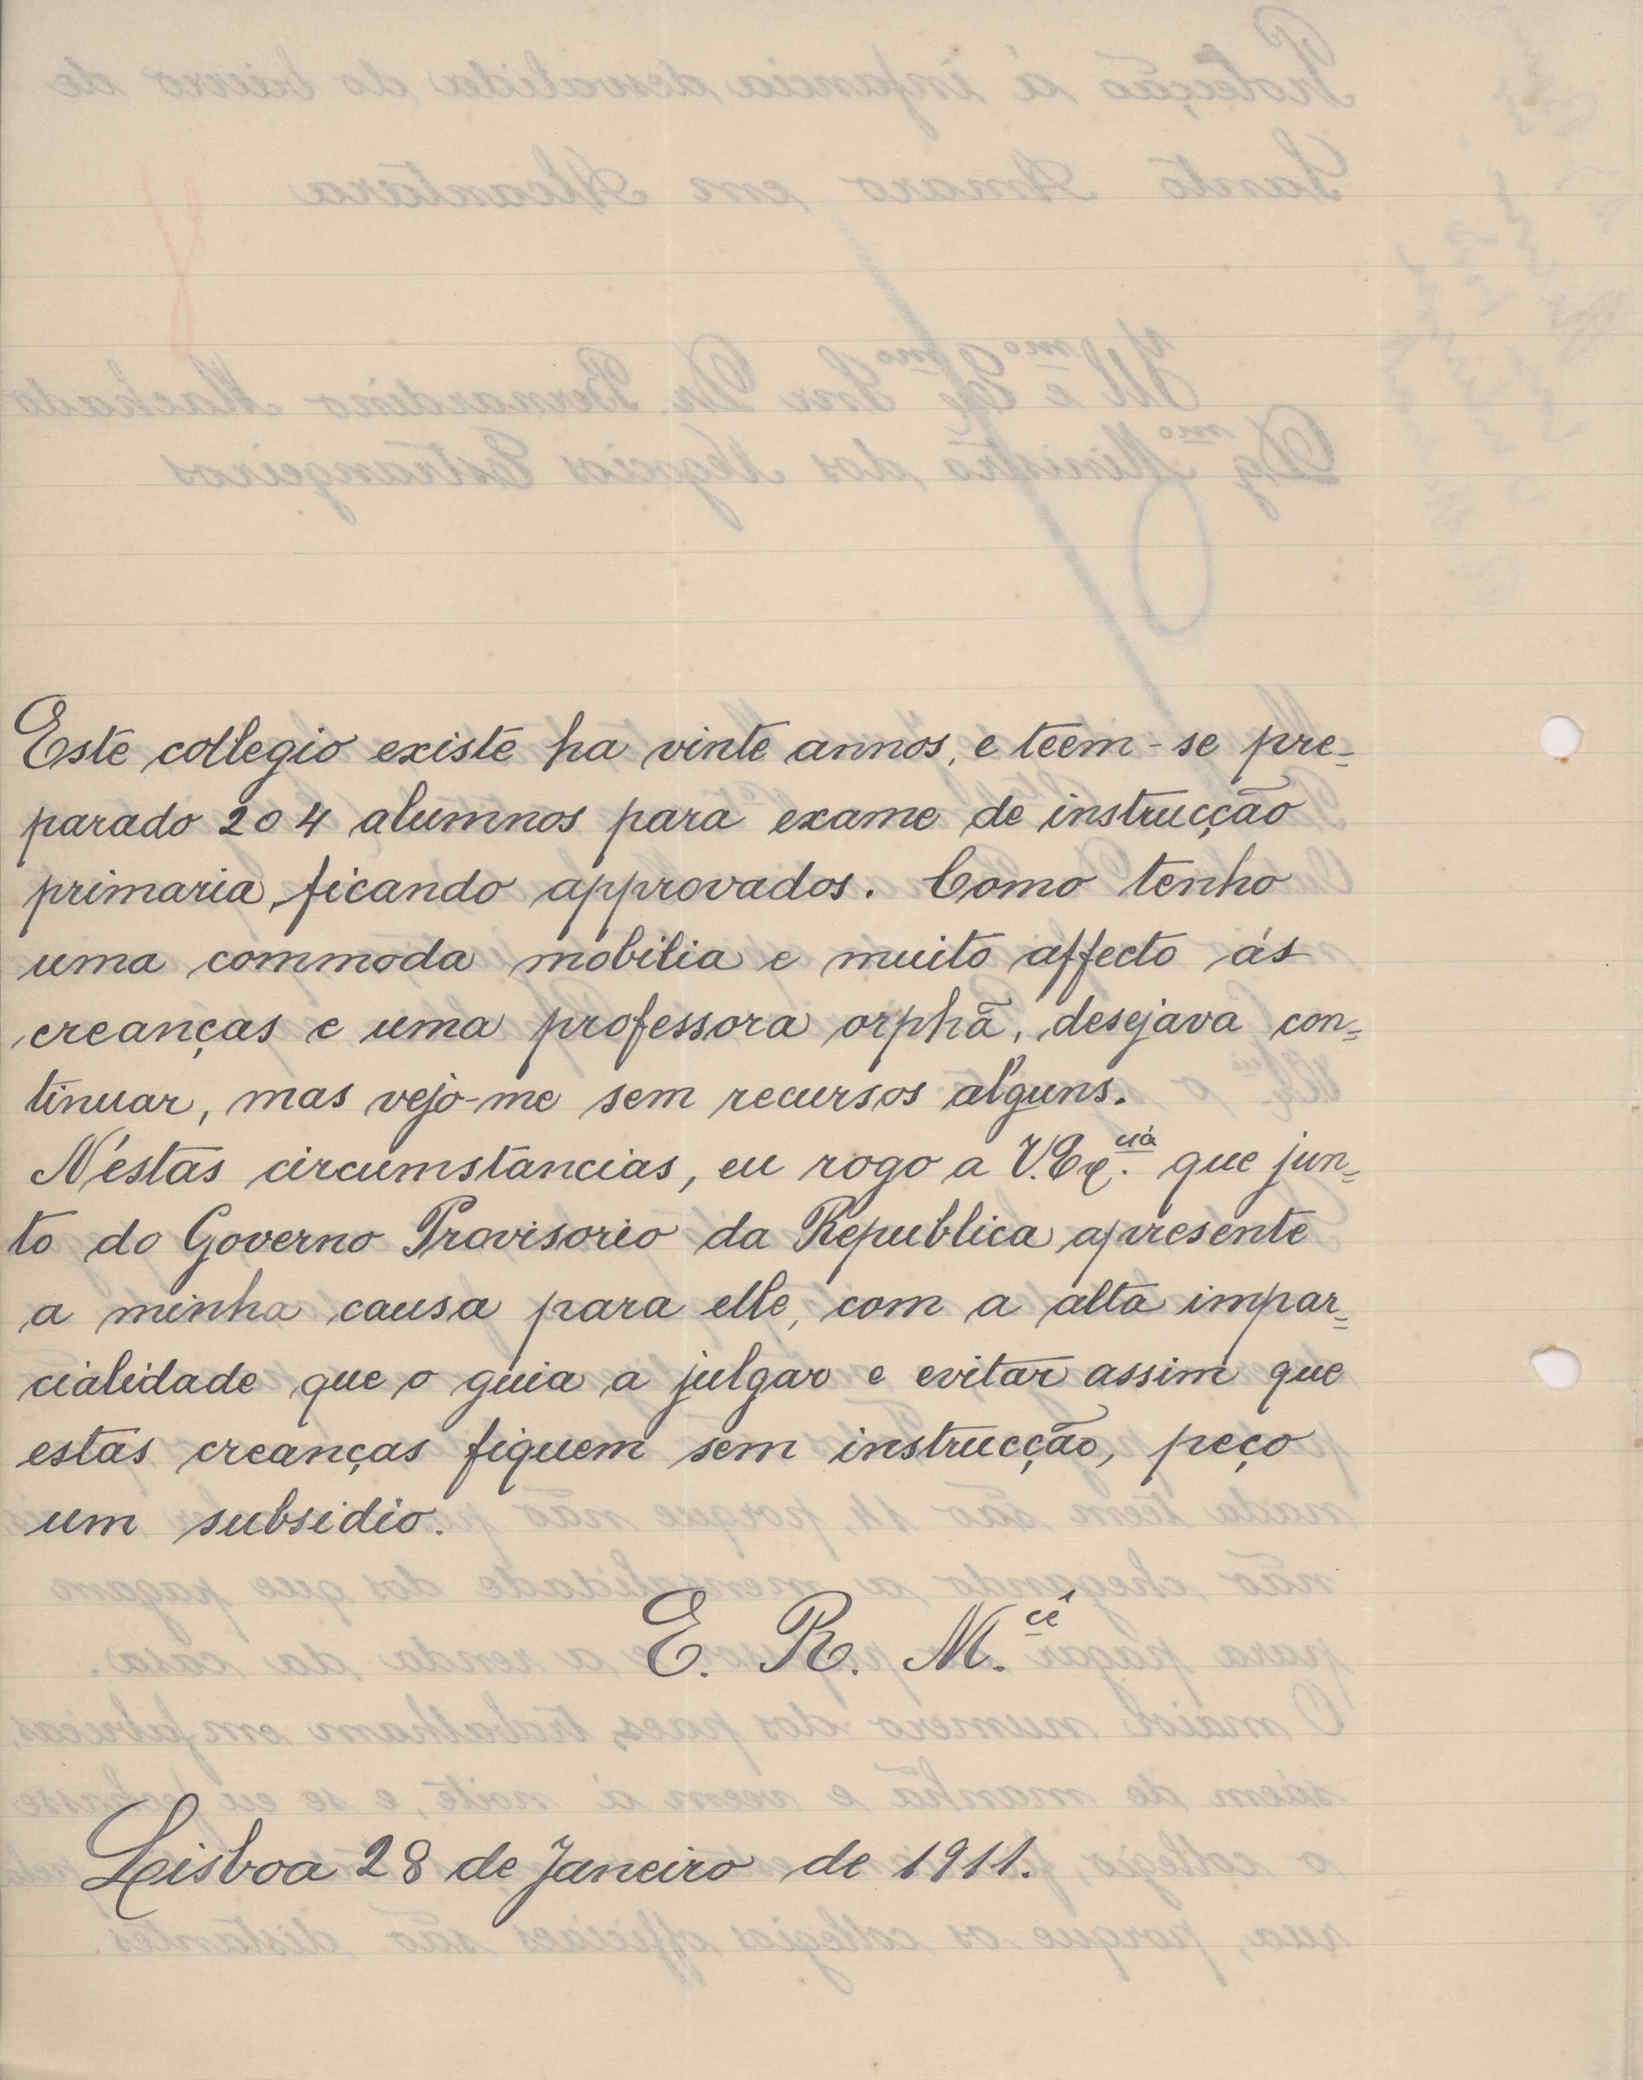 Este collegio existe ha vinte annos, e teem-se pre-
parado 204 alumnos para exame de instrucção
primaria, ficando approvados. Como tenho
uma commoda mobilia e muito affecto ás
creanças e uma professora orphã, desejava con-
tinuar, mas vejo-me sem recursos alguns.
N'estas circumstancias, eu rogo a V. Ex.cia que jun-
to do Governo Provisorio da Republica apresente
a minha causa para elle, com a alta impar-
cialidade que o guia a julgar e evitar assim que
estas creanças fiquem sem instrucção, peço
um subsidio.
E. R. M.cê
Lisboa 28 de Janeiro de 1911.